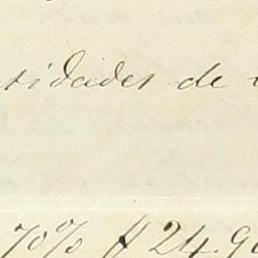 tidades de
70% $24.90